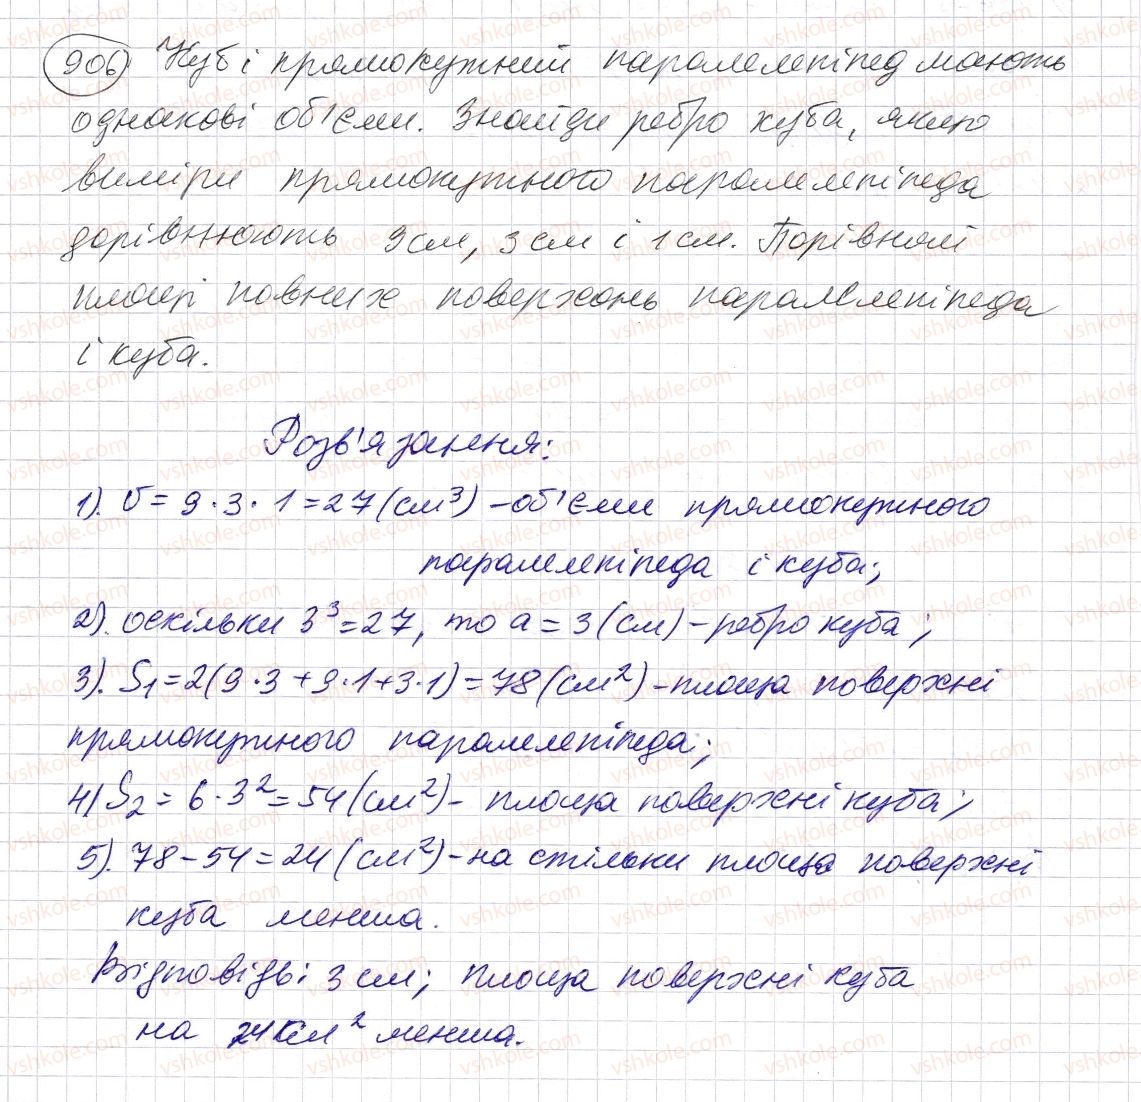 906 Куб і прямокутний паралелепіпед мають
однакові об'єми. Знайди ребро куба, якщо
виміри прямокутного паралелепіпеда
дорівнюють 9 см, 3 см і 1 см. Порівняй
площі повних поверхонь паралелепіпеда
і куба.
Розв'язання:
1). V = 9 · 3 · 1 = 27 (см³) – об'єми прямокутного
паралелепіпеда і куба;
2). оскільки 3³ = 27, то a = 3 (см) – ребро куба;
3). S₁ = 2(9·3 + 9·1 + 3·1) = 78 (см²) – площа поверхні
прямокутного паралелепіпеда;
4) S₂ = 6 · 3² = 54 (см²) – площа поверхні куба;
5). 78 – 54 = 24 (см²) – на стільки площа поверхні
куба менша.
Відповідь: 3 см; площа поверхні куба
на 24 см² менша.